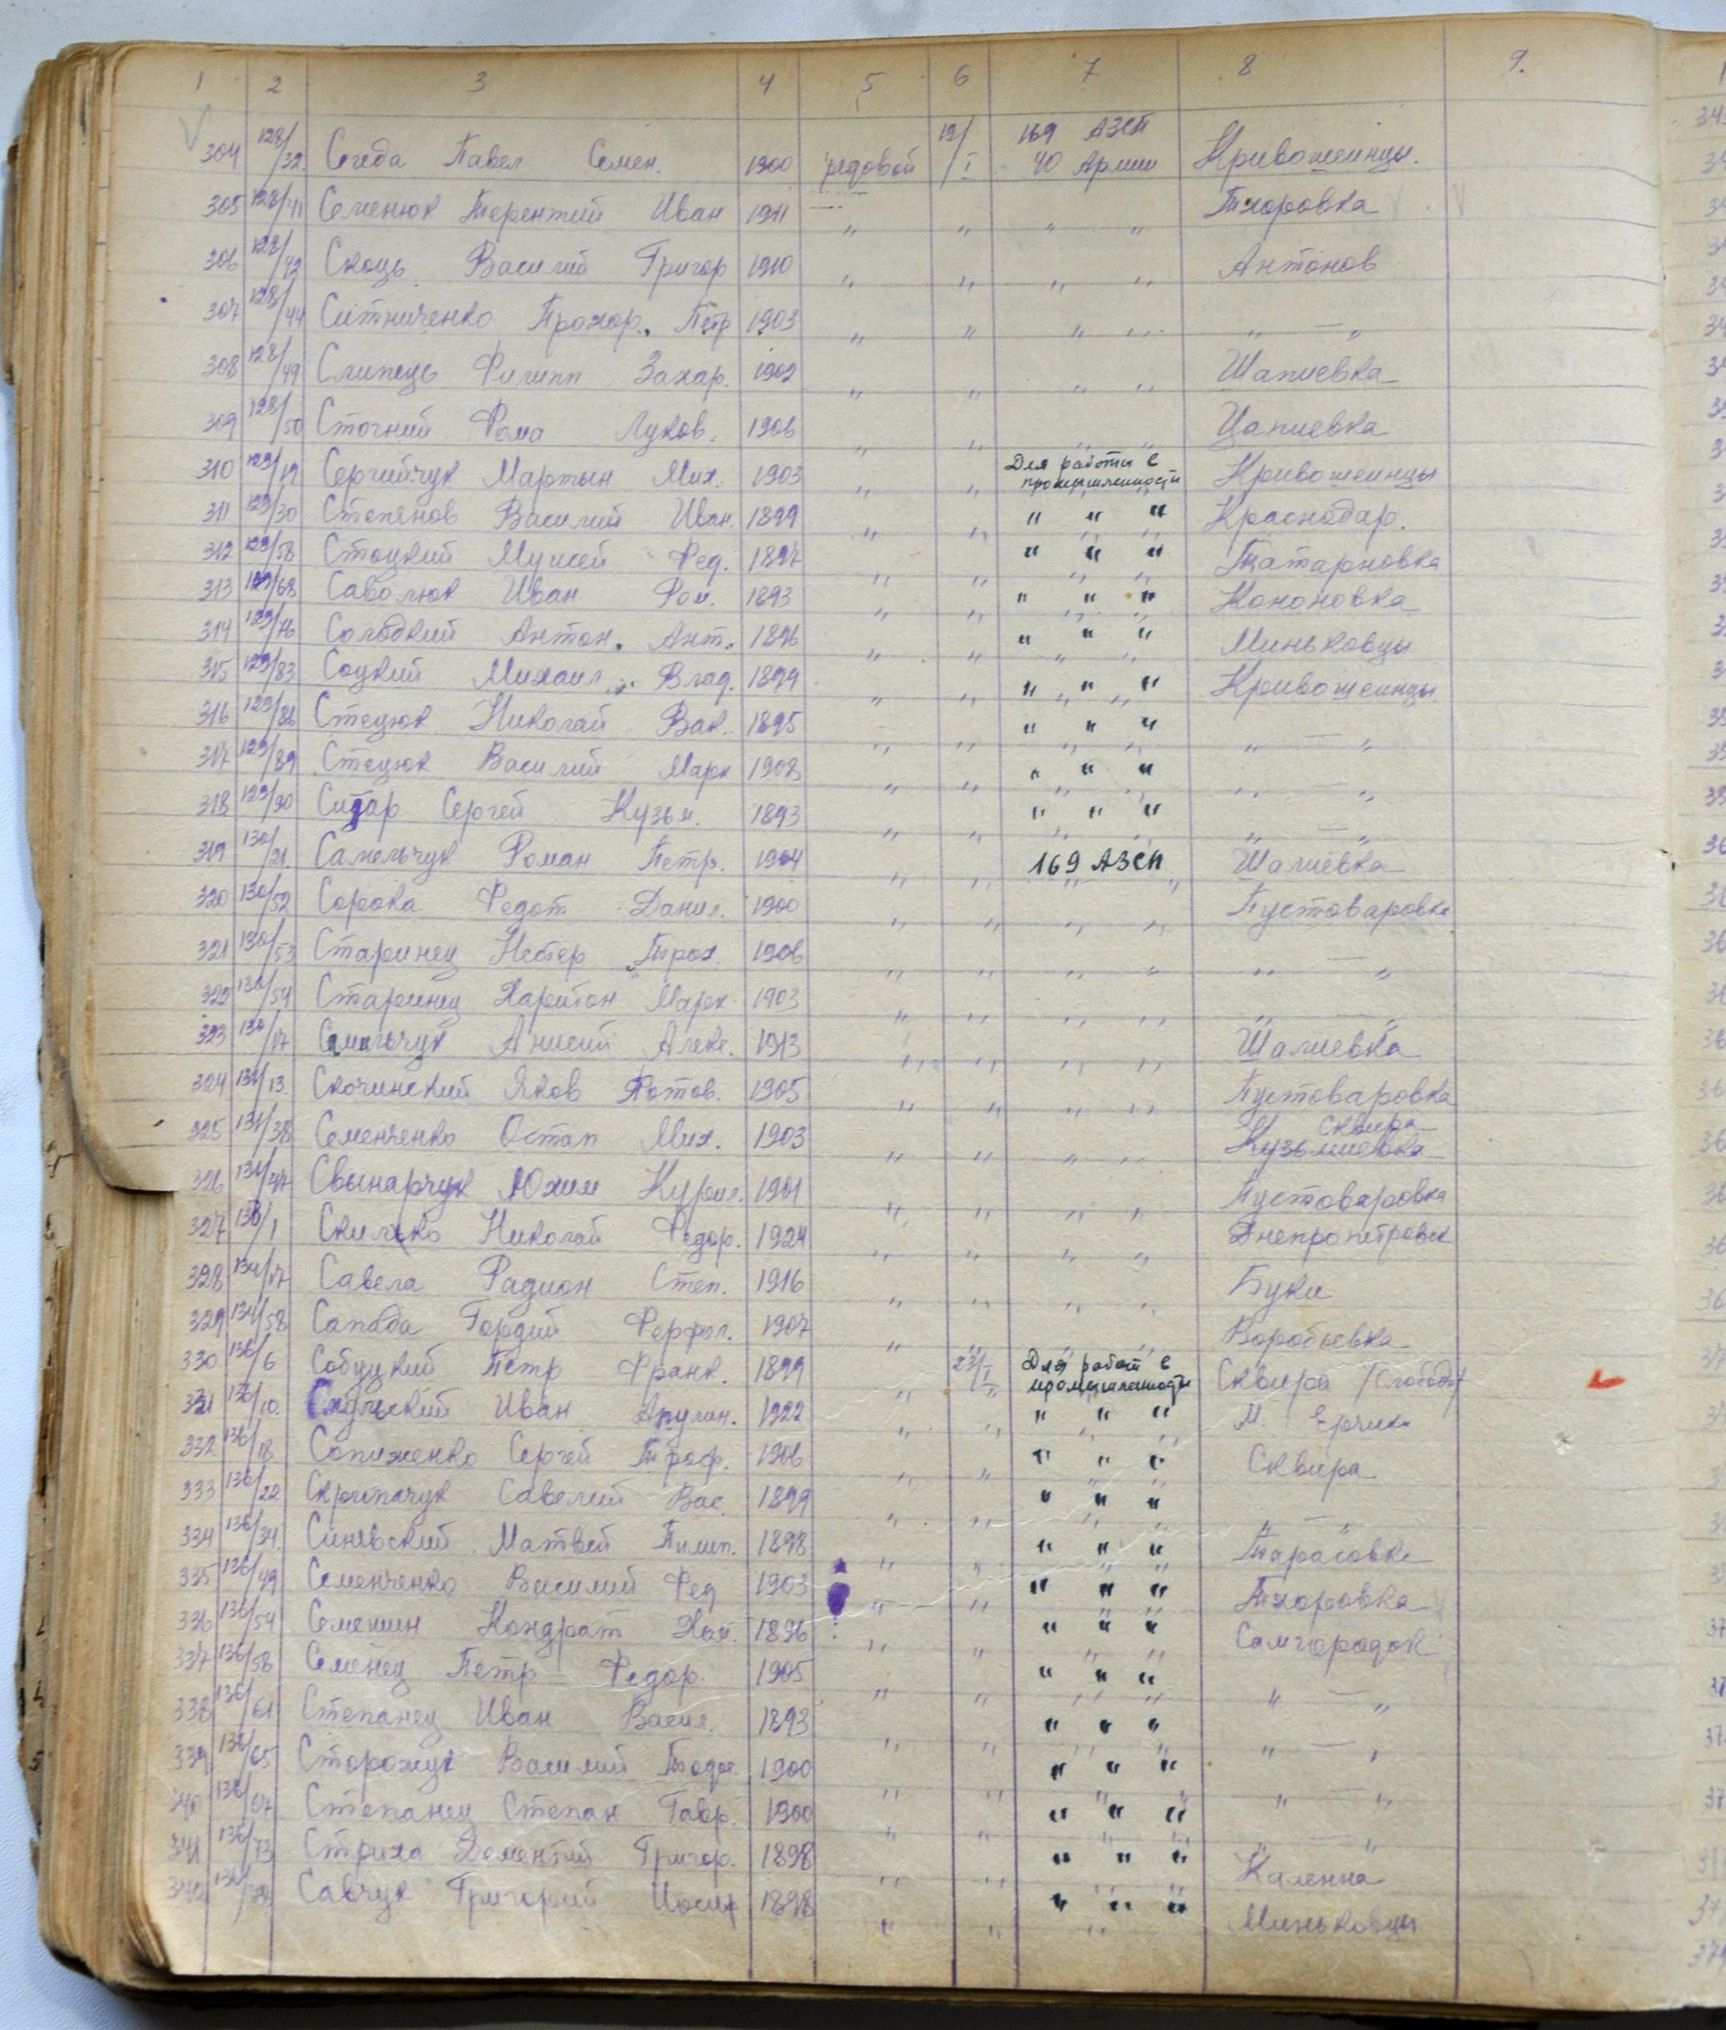 1 2 3 4 5 6 7 8 9.
304 128/32 Сегеда Павел Семен. 1900 рядовой 19/I 169 АЗСП 40 Армии Кривошеинцы.
305 128/41 Семенюк Терентий Иван 1911 " " " " Тхоровка
306 128/42 Скоць Василий Григор 1910 " " " " Антонов
307 128/44 Ситниченко Прохор. Петр 1903 " " " " " — "
308 128/49 Слипець Филипп Захар. 1902 " " " " Шапиевка
309 128/50 Стогний Фома Луков. 1906 " " " " Цапиевка
310 129/19 Сергийчук Мартын Мих. 1903 " " Для работы в промышленности Кривошеинцы
311 129/30 Степанов Василий Иван. 1899 " " " " " Краснодар.
312 129/58 Стоцкий Мусей Фед. 1897 " " " " " Татариовка
313 129/68 Саволюк Иван Ром. 1893 " " " " " Кононовка
314 129/76 Солодкий Антон. Ант. 1896 " " " " " Миньковцы
315 129/83 Соцкий Михаил Влад. 1899 " " " " " Кривошеинцы
316 129/86 Стецюк Николай Вак. 1895 " " " " " " — "
317 129/89 Стецюк Василий Марк 1908 " " " " " " — "
318 129/90 Ситар Сергей Кузьм. 1893 " " " " " " — "
319 130/21 Самельчук Роман Петр. 1904 " " 169 АЗСП Шалиевка
320 130/52 Сорока Федот Данил. 1900 " " " " Пустоваровка
321 130/53 Старинец Нестер Трох. 1906 " " " " " — "
322 130/54 Старинец Харитон Марк. 1903 " " " " " — "
323 Самильчук Анисий Алекс. 1913 " " " " Шалиевка
324 131/13 Скочинский Яков Фотов. 1905 " " " " Пустоваровка
325 131/38 Семенченко Остап Мих. 1903 " " " " Сквира Кузьминовка
326 131/47 Свынарчук Юхим Курил. 1901 " " " " Пустоваровка
327 /1 Скилько Николай Федор. 1924 " " " " Днепропетровск
328 Савела Радион Степ. 1916 " " " " Буки
329 134/58 Сапода Гордий Ферфол. 1907 " " " " Воробьевка
330 136/6 Собуцкий Петр Франк. 1899 " 23/I Для работ в промышленность Сквирой /Слобода/
331 136/10 Иван 1922 " " " " " М. Ерчики
332 136/18 Сопиженко Сергей Троф. 1906 " " " " " Сквира
333 136/22 Скрипачук Савелий Вас. 1899 " " " " " " — "
334 136/34 Синявский Матвей Пилип. 1898 " " " " " Тарасовка
335 136/49 Семенченко Василий Фед 1903 " " " " " Тхоровка
336 136/54 Семешин Кондрат 1896 " " " " " Самгородок
337 136/58 Семенец Петр Федор. 1905 " " " " " " — "
338 136/61 Степанец Иван Васил. 1893 " " " " " " — "
339 136/65 Сторожук Василий Тодос. 1900 " " " " " " — "
340 136/67 Степанец Степан Гавр. 1900 " " " " " " — "
341 136/73 Стриха Дементий Григор. 1898 " " " " " Каленна
342 Савчук Григорий Иосип 1898 " " " " " Миньковцы